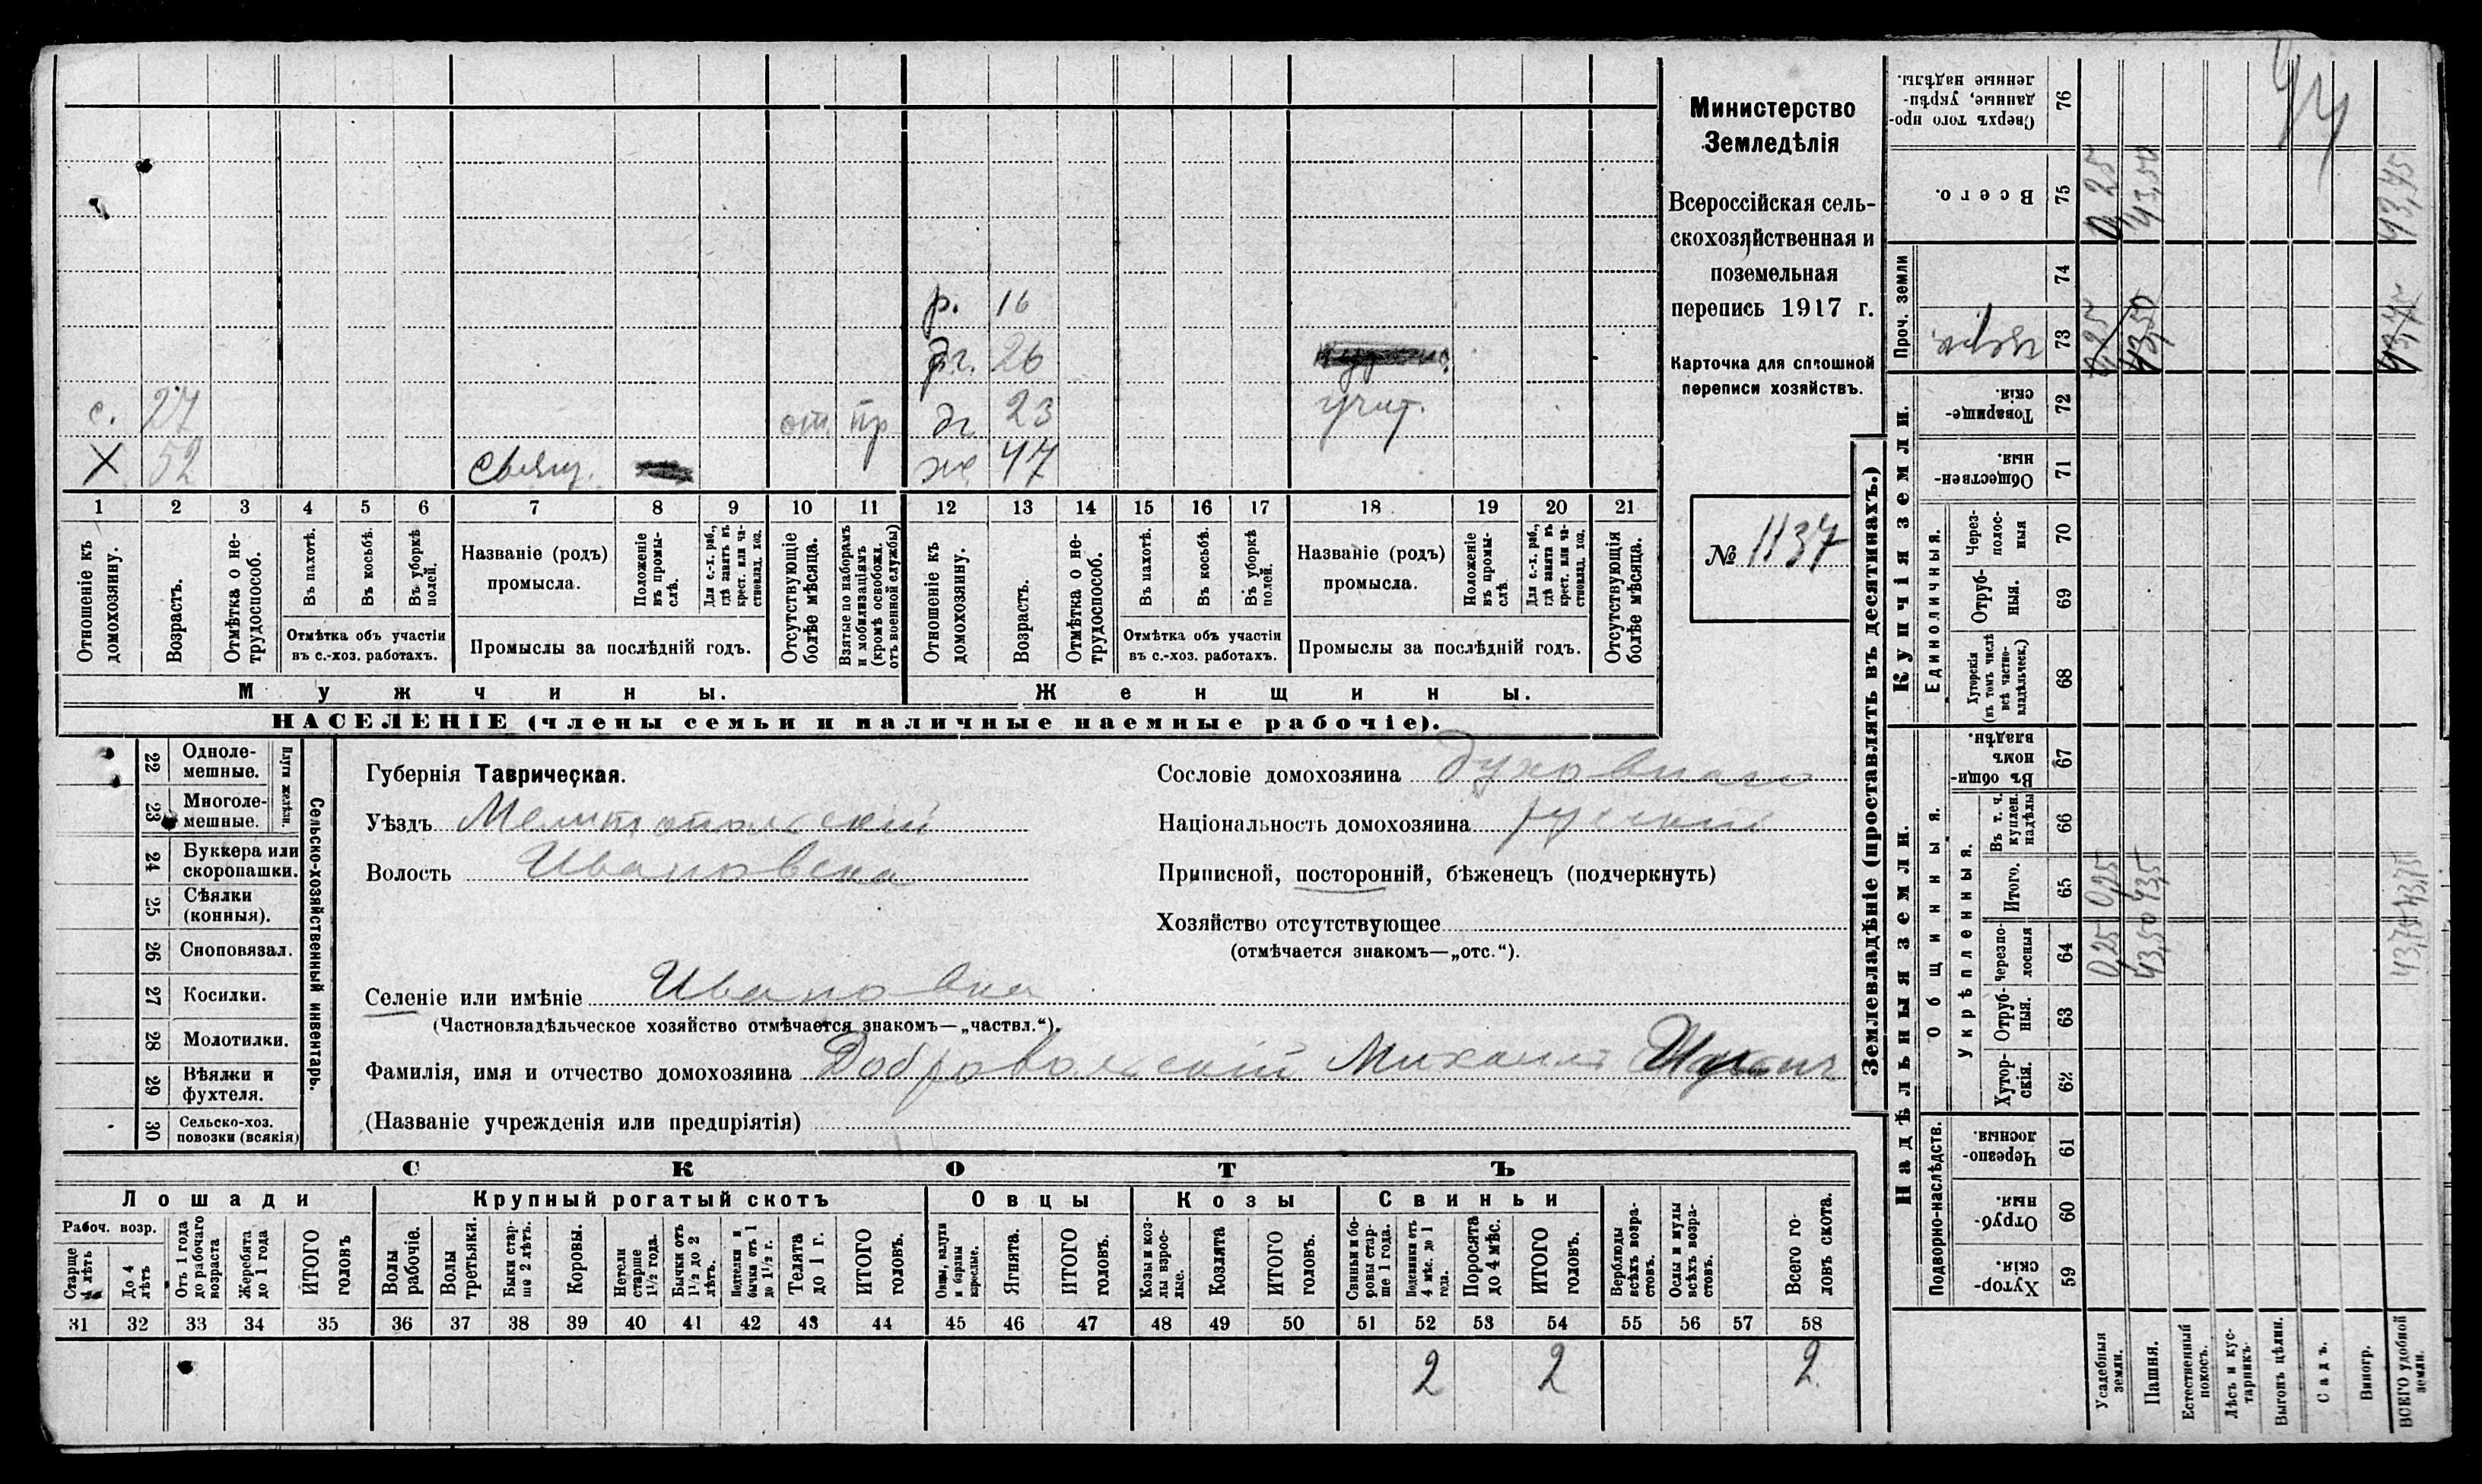 р. 16
дг. 26
с. 27 от. пр дг 23 учит.
Х 52 свящ. ж 47
1 2 3 4 5 6 7 8 9 10 11 12 13 14 15 16 17 18 19 20 21
Отношеніе къ домохозяину.
Возрастъ.
Отмѣтка о не-
трудоспособ.
Въ пахотѣ.
Въ косьбѣ.
Въ уборкѣ полей.
Отмѣтка объ участіи
въ с.-хоз. работахъ.
Названіе (родъ)
промысла.
Положеніе
въ промы-
слѣ.
Для с.-х. раб.,
гдѣ занятъ въ
крест. или ча-
стновлад. хоз.
Промыслы за послѣдній годъ.
Отсутствующіе
болѣе мѣсяца.
Взятые по наборамъ
и мобилизаціямъ
(кромѣ освобожд.
отъ военной службы)
Отношеніе къ
домохозяину.
Возрастъ.
Отмѣтка о не-
трудоспособ.
Въ пахотѣ.
Въ косьбѣ.
Въ уборкѣ
полей.
Отмѣтка объ участіи
въ с.-хоз. работахъ.
Названіе (родъ)
промысла.
Положеніе
въ промы-
слѣ
Для с.-х. раб.,
гдѣ занята въ
крест. или ча-
стновлад. хоз.
Промыслы за послѣдній годъ.
Отсутствующія
болѣе мѣсяца.
Мужчины. Женщины.
НАСЕЛЕНІЕ (члены семьи и наличные наемные рабочіе).
Министерство
Земледѣлія
Всероссійская сель-
скохозяйственная и
поземельная
перепись 1917 г.
Карточка для сплошной
переписи хозяйствъ.
№ 1137
22 Одноле-
мешные.
23 Многоле-
мешные.
Плуги желѣзн.
24 Буккера или
скоропашки.
25 Сѣялки
(конныя).
26 Сноповязал.
27 Косилки.
28 Молотилки.
29 Вѣялки и
фухтеля.
30 Сельско-хоз.
повозки (всякія)
Сельско-хозяйственный инвентарь.
Губернія Таврическая.
Уѣздъ Мелитопольскій
Волость Ивановска
Селеніе или имѣніе Ивановка
(Частновладѣльческое хозяйство отмѣчается знакомъ—„частвл.“).
Фамилія, имя и отчество домохозяина Добровольскій Михаилъ
(Названіе учрежденія или предпріятія)
Сословіе домохозяина духовная
Національность домохозяина русскій
Приписной, посторонній, бѣженецъ (подчеркнуть)
Хозяйство отсутствующее
(отмѣчается знакомъ—„отс.“).
СКОТЪ
Лошади Крупный рогатый скотъ Овцы Козы Свиньи
Рабоч. возр.
Старше
4 лѣтъ
До 4
лѣтъ
Отъ 1 года
до рабочаго
возраста
Жеребята
до 1 года
ИТОГО
головъ
Волы
рабочіе.
Волы
третьяки.
Быки стар-
ше 2 лѣтъ.
Коровы.
Нетели
старше
1½ года.
Бычки отъ
1½ до 2
лѣтъ.
Подтелки и
бычки отъ 1
до 1½ г.
Телята
до 1 г.
ИТОГО
головъ.
Овцы, валухи
и бараны
взрослые.
Ягнята.
ИТОГО
головъ.
Козы и коз-
лы взрос-
лые.
Козлята
ИТОГО
головъ.
Свиньи и бо-
ровы стар-
ше 1 года.
Подсвинки отъ
4 мѣс. до 1
года.
Поросята
до 4 мѣс.
ИТОГО
головъ.
Верблюды
всѣхъ возра-
стовъ.
Ослы и мулы
всѣхъ возра-
стовъ.
Всего го-
ловъ скота.
31 32 33 34 35 36 37 38 39 40 41 42 43 44 45 46 47 48 49 50 51 52 53 54 55 56 57 58
2 2 2
Землевладѣніе (проставлять въ десятинахъ.)
Сверхъ того про-
данные, укрѣп-
ленные надѣлы.
76
Всего. 75 0,25 43,50 43,75
Проч. земли
74
церк. 73 0,25 43,50 43,75
Купчія земли.
Товарище-
скія 72
Обществен-
ныя. 71
Единоличныя.
Через-
полос-
ныя 70
Отруб-
ныя. 69
Хуторскія
(въ томъ числѣ
всѣ частно-
владѣльческ.) 68
Надѣльныя земли.
Общинныя.
Въ общи-
номъ
владѣн. 67
Укрѣпленныя.
Въ т. ч.
куплен.
надѣлы 66
Итого. 65 0,25 43,5 43,75
Черезпо-
лосныя 64 0,25 43,50 43,75
Отруб-
ныя. 63
Хутор-
скія. 62
Подворно-наслѣдств.
Черезпо-
лосныя. 61
Отруб-
ныя. 60
Хутор-
скія. 59
Усадебныя
земли.
Пашня.
Естественный
покосъ.
Лѣсъ и кус-
тарникъ.
Выгонъ цѣлин.
Садъ.
Виногр.
ВСЕГО удобной
земли.